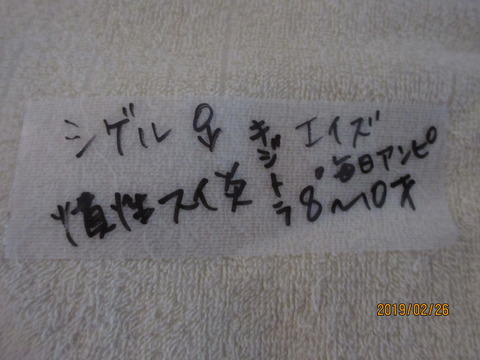 シゲル ♀ キジトラ エイズ
・毎日アンピ
慢性スイ炎 8〜10才
2019/02/26